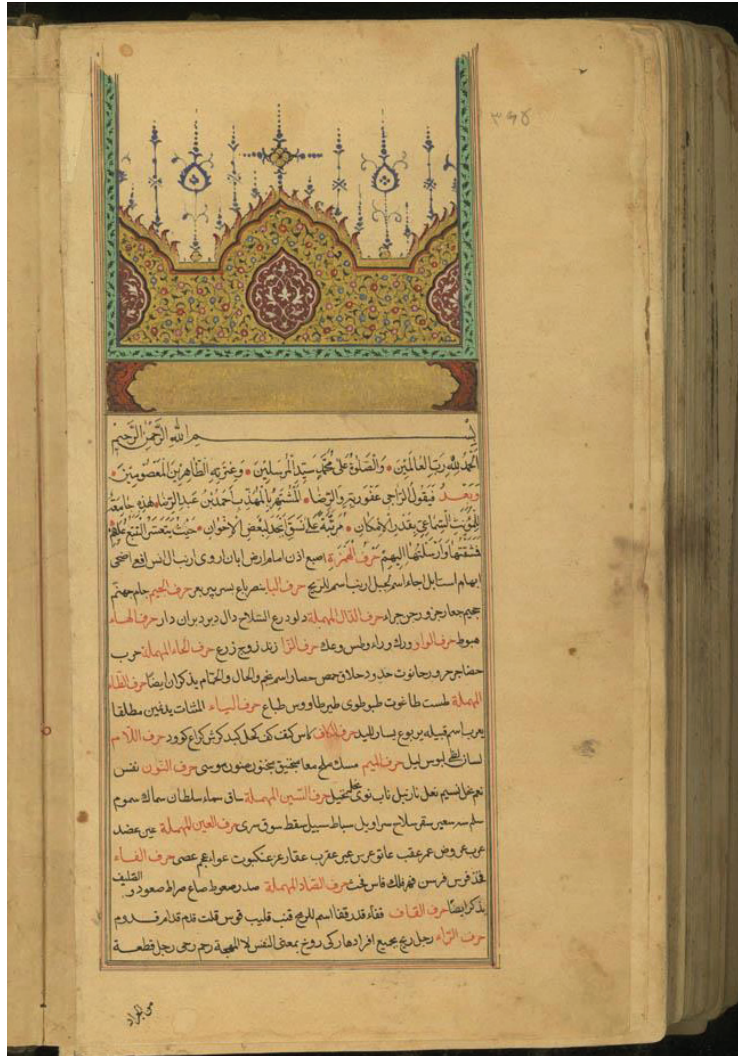 ٣٩٥
بسم الله الرحمن الرحيم
الحمد لله رب العالمين والصلوة على محمد سيد المرسلين وعترته الطاهرين المعصومين
وبعد فيقول الراجي عفو ربه والرضا المشتهر بالمهذب احمد بن عبد الرضا هذه جامعة
للمؤنث السماعي بقدر الامكان مرتبة على نسق ابجد لبعض الاخوان حيث يتعسر التتبع عليهم
فشقتها وارسلتها اليهم حرف الهمزة اصبع اذن امام ارض ابان اروى ارنب ال انس افعى اضحى
ابهام است ابل اجاء اسم لجبل ازيب اسم للريح حرف البا بنصر باع بسر بير بعر حرف الجيم جام جهنم
جحيم جعار جزور جراد حرف الدال المهملة دلو درع السلاح دال دبر دبران دار حرف الهاء
هبوط حرف الواو ورك وراء ولس وعك حرف الزا زند زوج زرع حرف الحاء المهملة حرب
حضاجر حرور حانوت حدود حلاق حمص حصار اسم نجم والحال والحمام يذكران ايضا حرف الطاء
المهملة طست طاغوت طبوطوى طير طاووس طباع حرف الياء المثنات يد يمين مطلقا
يعرب اسم قبيله يربوع يسار لليد حرف الكاف كاس كتف كف كحل كبد كرش كراع كوود حرف اللام
لسان لظى لبوس ليل حرف الميم مسك ملح معا منجنيق منجنون منون موسى حرف النون نفس
نعم نحل نسيم نعل نار نبل ناب نوى نخيل حرف السين المهملة ساق سماء سلطان سماك سموم
سلم سعير سقر سلاح سراويل سباط سبيل سقط سوق سرى حرف العين المهملة عين عضد
عرب عروض عمر عقب عاتق عرس عير عقرب عقار عز عنكبوت عواء عجم عصى حرف الفاء
فخذ فرس فرسن فهر فلك فاس فحث حرف الصاد المهملة صدر صعوط صاع صراط صعود و القليب
يذكر ايضا حرف القاف قفاء قدر قفا اسم للرمح قتب قليب قوس قلت قدم قدام قدوم
حرف الراء رجل ريح بجميع افرادها ركى روح بمعنى النفس لا المهجة رحم رحى رجل قطعة
من الجراد